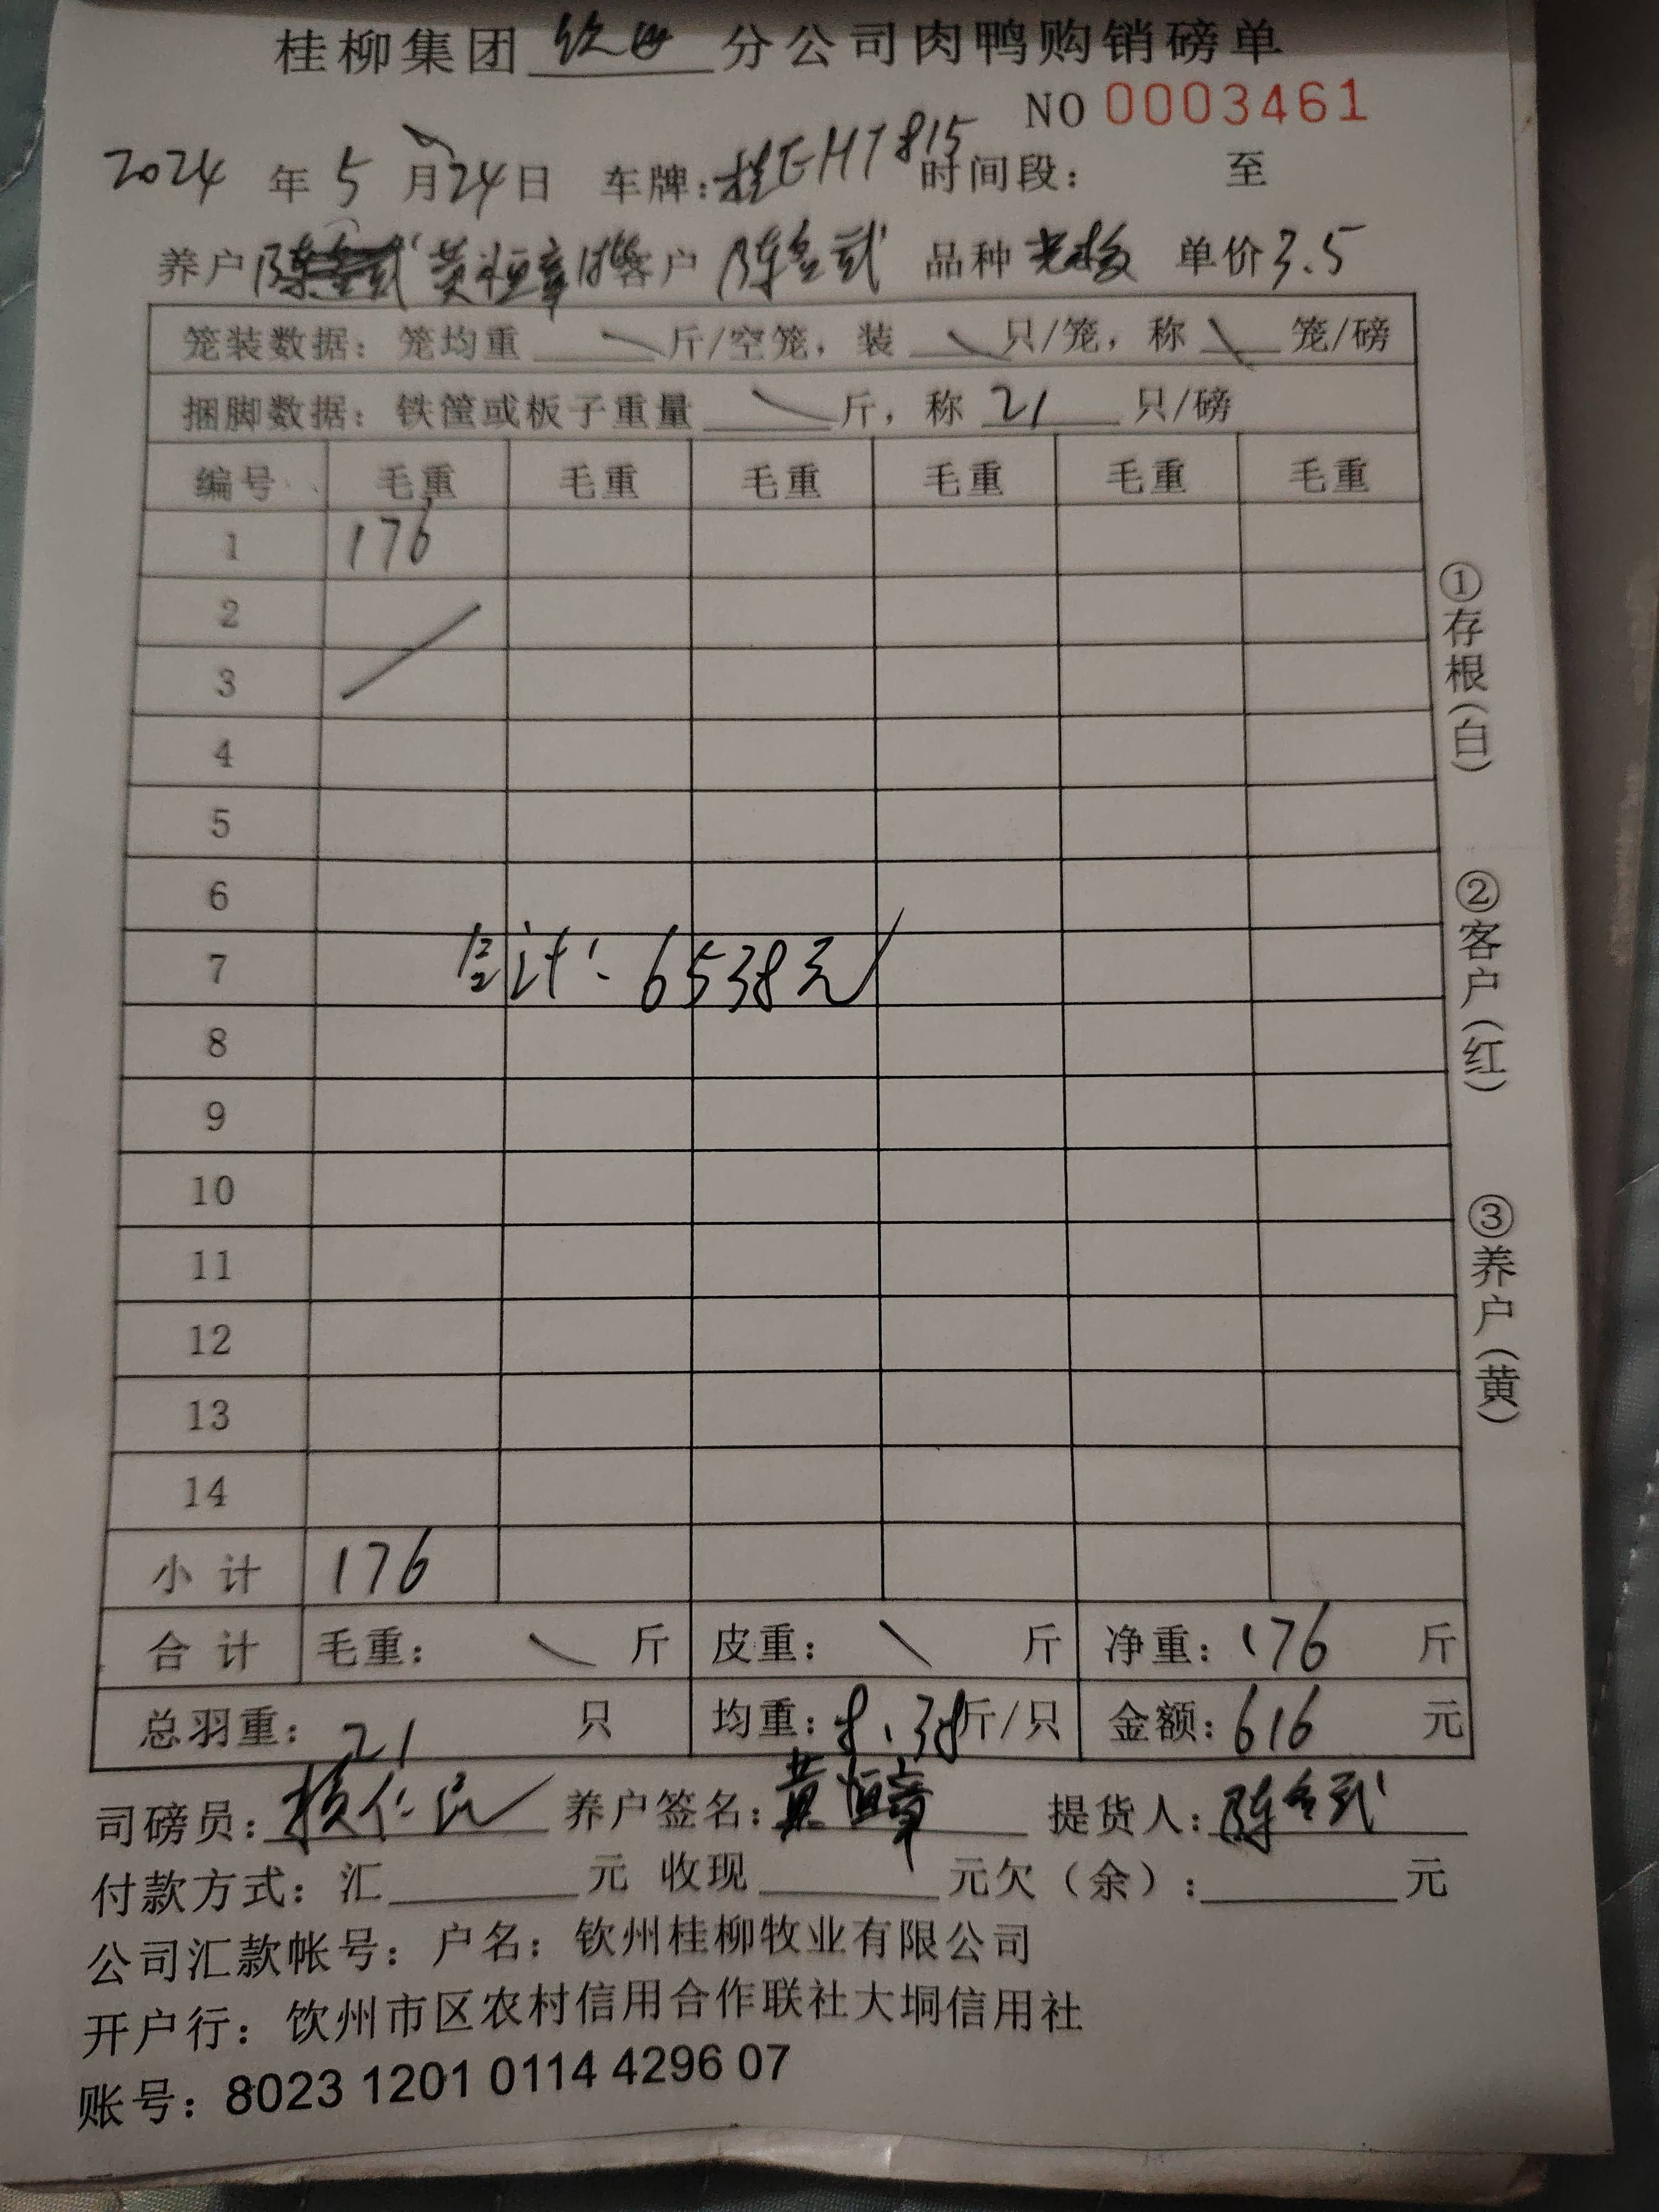 桂柳集团 钦州 分公司肉鸭购销磅单
NO 0003461
2024 年 5 月 24 日 车牌: 桂EHT815 时间段: 至
养户 黄恒章 客户 陈 武 品种 单价 3.5
笼装数据: 笼均重 \ 斤/空笼, 装 \ 只/笼, 称 \ 笼/磅
捆脚数据: 铁筐或板子重量 \ 斤, 称 21 只/磅
编号 毛重 毛重 毛重 毛重 毛重 毛重
1 176
2
3
4
5
6
7 合计: 6538元
8
9
10
11
12
13
14
小计 176
合计 毛重: \ 斤 皮重: \ 斤 净重: 176 斤
总羽重: 21 只 均重: 8.38 斤/只 金额: 616 元
司磅员: 养户签名: 黄恒章 提货人: 陈 武
付款方式: 汇 元 收现 元欠(余): 元
公司汇款帐号: 户名: 钦州桂柳牧业有限公司
开户行: 钦州市区农村信用合作联社大垌信用社
账号: 8023 1201 0114 4296 07
①存根(白)
②客户(红)
③养户(黄)